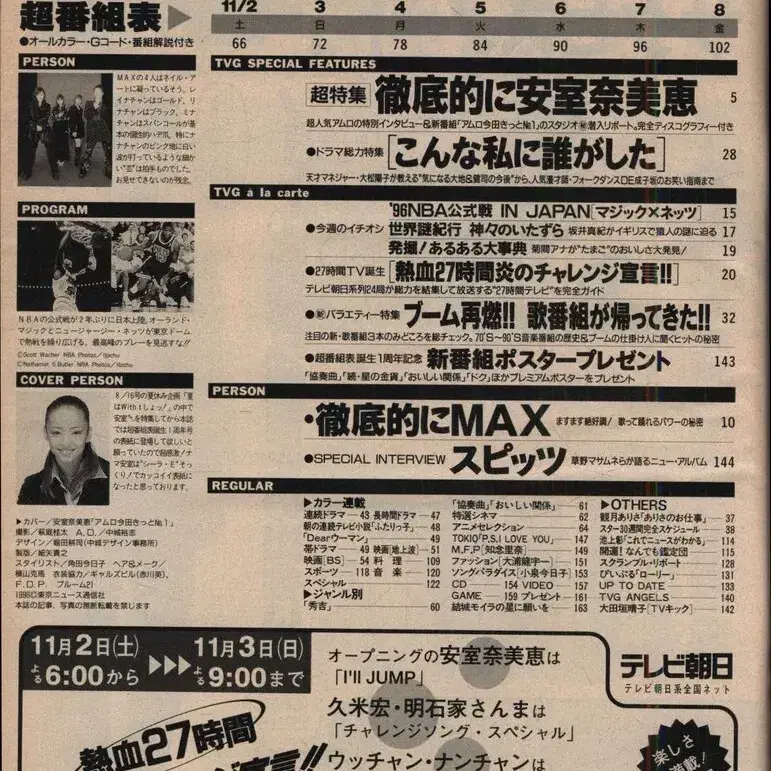 超番組表▶
●オールカラー・Gコード・番組解説付き
11/2 3 4 5 6 7 8
土 日 月 火 水 木 金
66 72 78 84 90 96 102
PERSON
MAXの4人はネイル・ア
ートに凝っているそう。レ
イナチャンはゴールド、リ
ナチャンはブラック、ミナ
チャンはスパンコールが基
本の個性的ハデ爪。特にナ
ナチャンのピンク地に白い
波が打っているような細かい
お見せできないのが残念。
PROGRAM
NBAの公式戦が2年ぶりに日本上陸。オーランド・
マジックとニュージャージー・ネッツが東京ドーム
で熱戦を繰り広げる。最高峰のプレーを見逃すな!!
©Scott Wacher NBA Photos/Itochu
©Nathaniel S Butler NBA Photos/Itochu
COVER PERSON
8/16号の夏休み企画「夏
はWithtしょっ!」の中で
安室を特集してから本誌
では超番組表誕生1周年号
の表紙に登場して欲しいと
願っていたので超感激!ナ
マ安室は"シーラ・E"そっ
くり!?でカッコイイ表紙に
なったと思っております。
▶カバー/安室奈美恵「アムロ今田きっと№1」
A.D./中城裕志
デザイン/堀田耕司(中城デザイン事務所)
製版/姫矢貴之
スタイリスト/角田今日子 ヘア&メーク/
横山克馬 衣装協力/ギャルズビル(香川英)、
F.D.P. ブルーム21
1996©東京ニュース通信社
本誌の記事、写真の無断転載を禁じます
TVG SPECIAL FEATURES
[超特集] 徹底的に安室奈美恵 5
超人気アムロの特別インタビュー&新番組「アムロ今田きっと№1」のスタジオ㊙潜入リポート。完全ディスコグラフィー付き
●ドラマ総力特集 [こんな私に誰がした] 28
天才マネジャー・大松陽子が教える"気になる大地&健司の今後"から、人気漫才師・フォークダンスDE成子坂のお笑い指南まで
TVG à la carte
'96NBA公式戦 IN JAPAN[マジック×ネッツ] 15
●今週のイチオシ 世界謎紀行 神々のいたずら 坂井真紀がイギリスで猿人の謎に迫る 17
発掘!あるある大事典 菊間アナが"たまご"のおいしさ大発見! 19
●27時間TV誕生 [熱血27時間炎のチャレンジ宣言!!] 20
テレビ朝日系列24局が総力を結集して放送する"27時間テレビ"を完全ガイド
●㊙バラエティー特集 ブーム再燃!! 歌番組が帰ってきた!! 32
注目の新・歌番組3本のみどころを総チェック。70'S〜90'S音楽番組の歴史&ブームの仕掛け人に聞くヒットの秘密
●超番組表誕生1周年記念 新番組ポスタープレゼント 143
「協奏曲」「続・星の金貨」「おいしい関係」「ドク」ほかプレミアムポスターをプレゼント
PERSON
・徹底的にMAX ますます絶好調! 歌って踊れるパワーの秘密 10
●SPECIAL INTERVIEW スピッツ 草野マサムネらが語るニュー・アルバム 144
REGULAR
▶カラー連載
連続ドラマ—43 長時間ドラマ—47
朝の連続テレビ小説「ふたりっ子」48
「Dearウーマン」 49
帯ドラマ—49 映画[地上波]—51
映画[BS]—54 料理—109
スポーツ—118 音楽—120
スペシャル 122
▶ジャンル別
「秀吉」 60
「協奏曲」「おいしい関係」—61
特選シネマ—62
アニメセレクション—64
TOKIO「P.S.I LOVE YOU」—147
M.F.P[知念里奈]—149
ファッション[大浦龍宇一]—151
ソングパラダイス[小泉今日子]—153
CD—154 VIDEO—157
GAME—159 プレゼント—161
結城モイラの星に願いを—163
▶OTHERS
観月ありさ「ありさのお仕事」—37
スター30週間完全スケジュール—38
池上彰「これでニュースがわかる」—114
開運!なんでも鑑定団—115
スクランブル・リポート—128
ぴいぷる「ローリー」—131
UP TO DATE—133
TVG ANGELS—140
大田垣晴子[TVキック]—142
11月2日(土) ▶▶▶ 11月3日(日)
よる6:00から よる9:00まで
オープニングの安室奈美恵は
「I'll JUMP」
久米宏・明石家さんまは
「チャレンジソング・スペシャル」
ウッチャン・ナンチャンは
テレビ朝日
テレビ朝日系全国ネット
熱血27時間
宣言!!
楽しさ
満載!